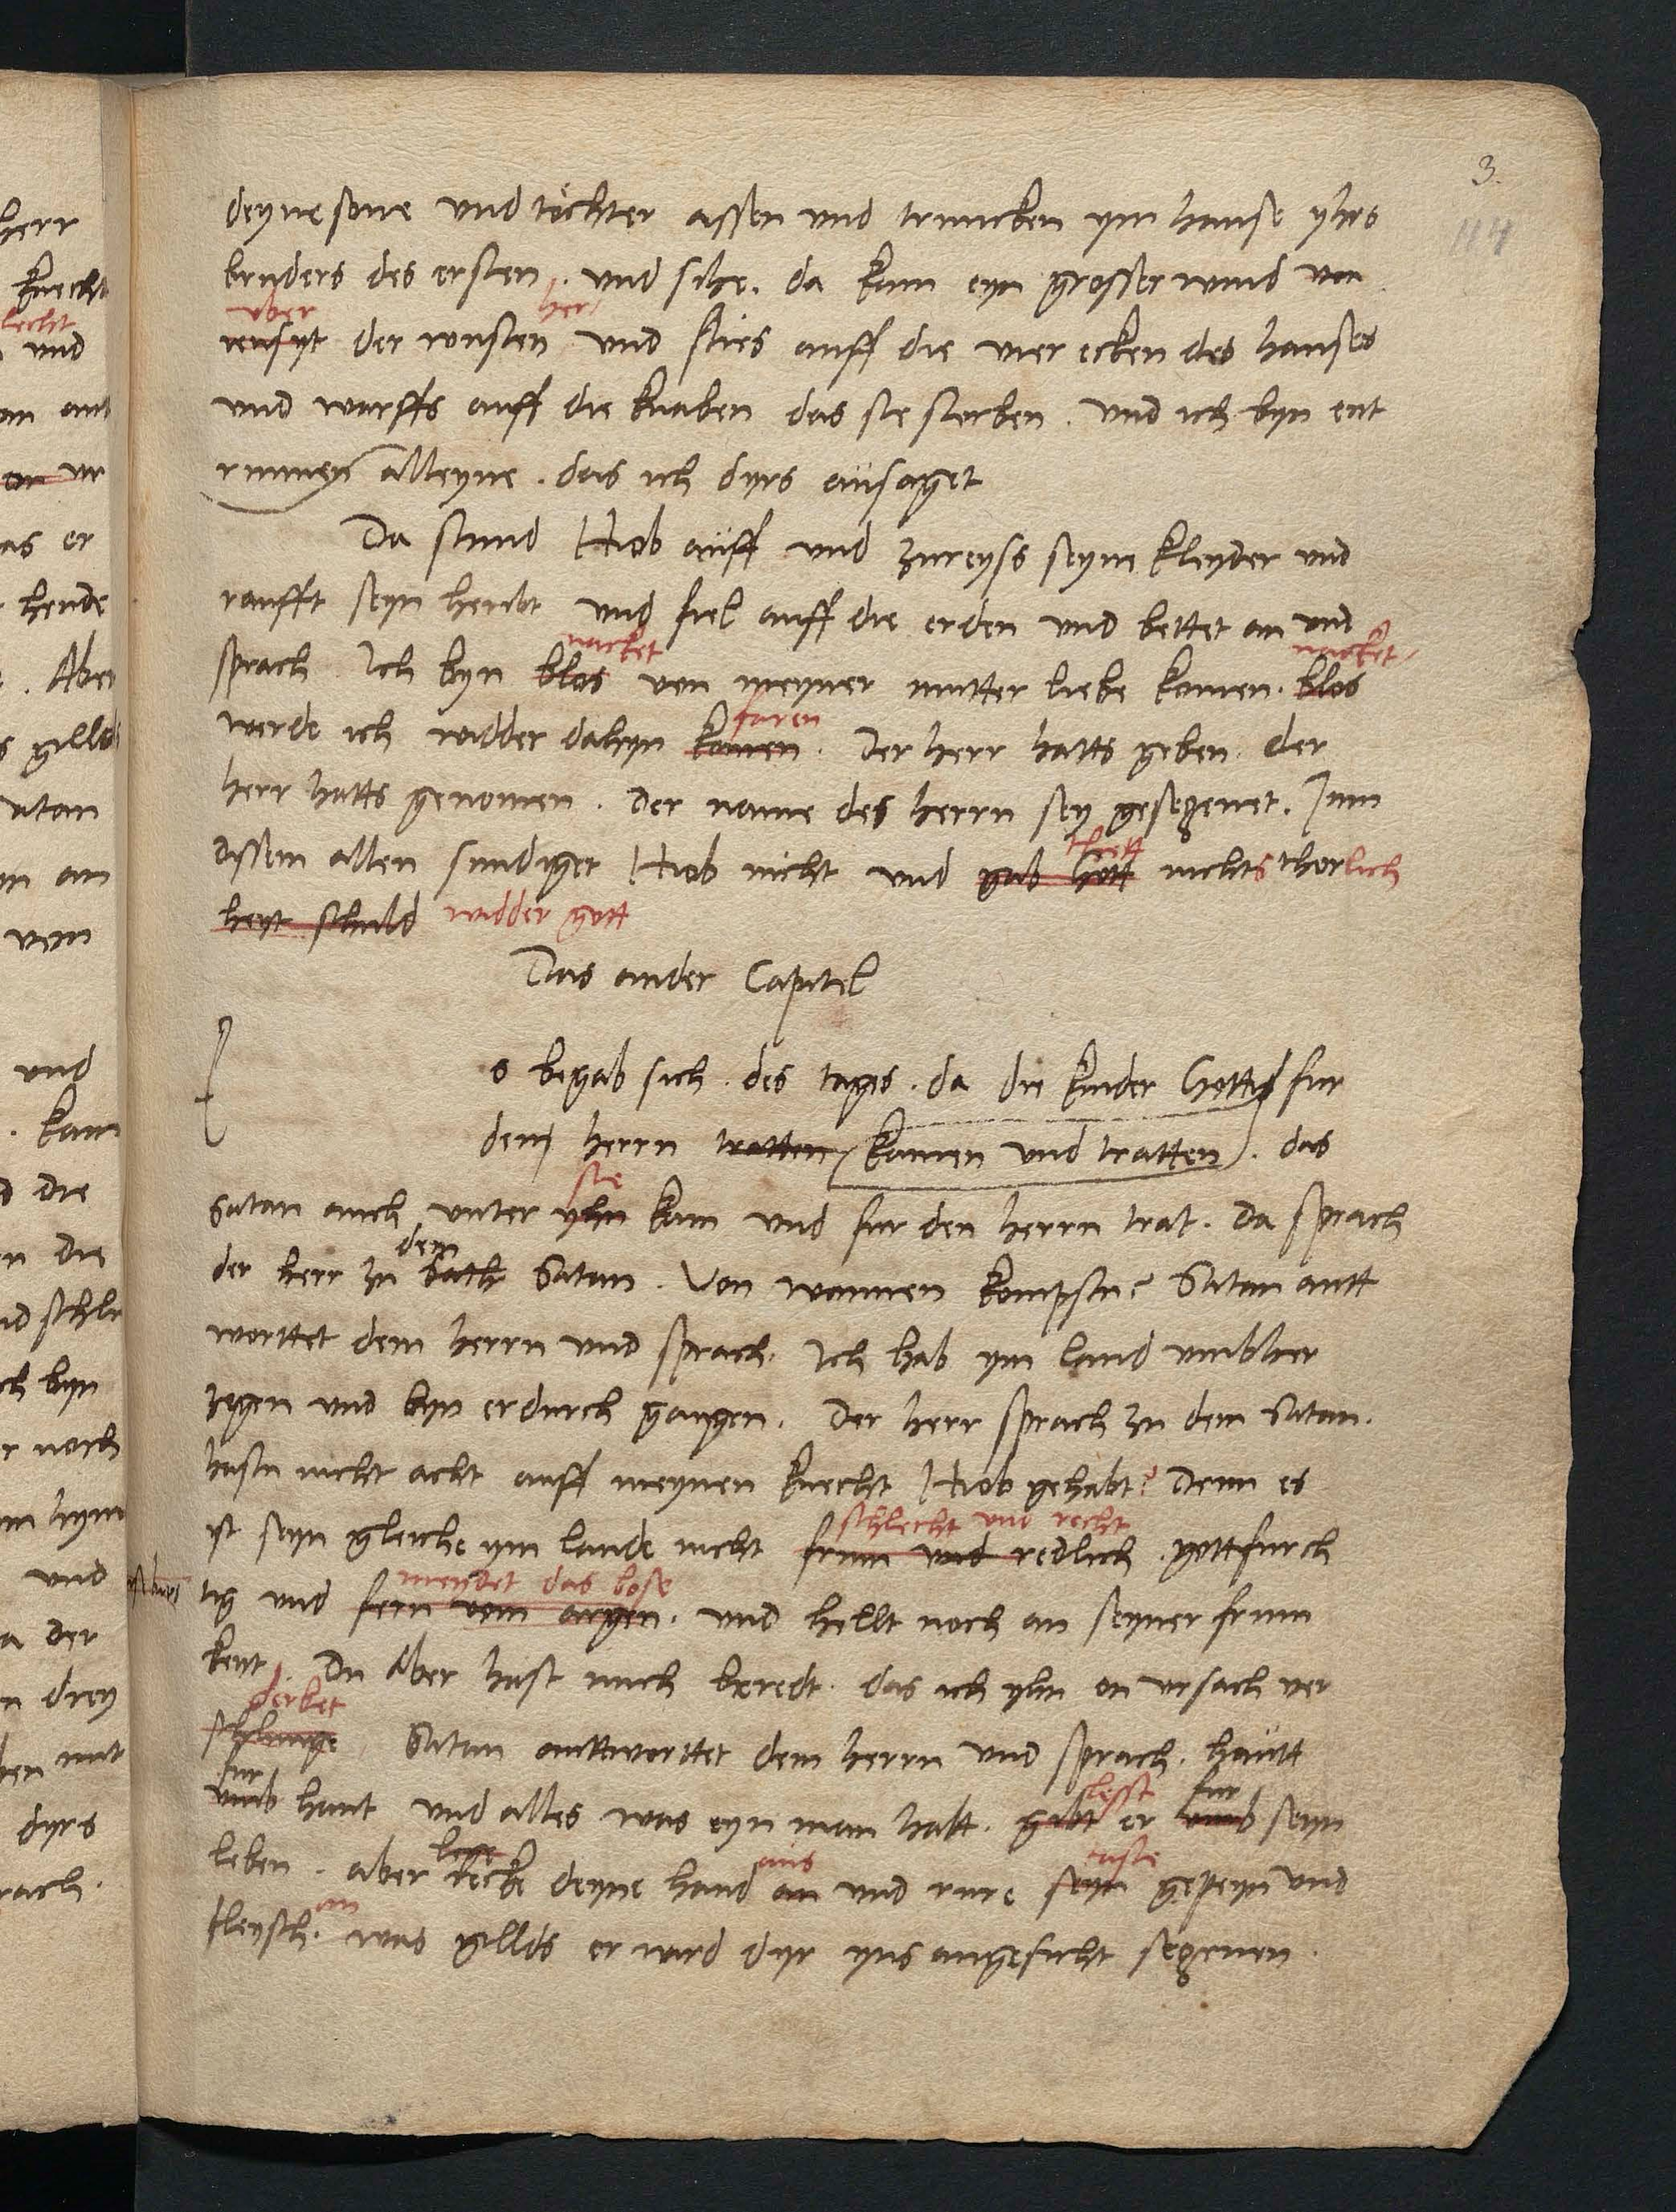 3.
114
deyne sone und töchter assen und truncken ym hause yhrs
bruders des ersten. und sihe. da kam eyn grosser wind von
uber her/
iensyt der wusten und sties auff die vier ecken des hauses
und warffs auff die knaben das sie storben. und ich byn ent
runnen alleyne. das ich dyrs ansaget
Da stund Hiob auff und zureyss seyne kleyder und
raufft seyn hewbt und fiel auff die erden und bettet an und
nacket nacket
sprach Ich byn blos von meyner mutter liebe komen. blos
faren
werde ich widder dahyn komen. Der herr hatts geben. der
herr hatts genomen. der name des herrn sey gesegenet. Inn
thett
dissem allen sundiget Hiob nicht und gab Gott nichts thorlich
heyt schuld widder gott
Das ander Capitel
s begab sich. des tages. da die kinder Gottis fur
dem herrn tratten (kamen und tratten). das
sie
Satan auch unter yhn kam und fur den herrn trat. Da sprach
dem
der herr zu Sath Satan. Von wannen kompstu? Satan antt
worttet dem herrn und sprach. Ich hab ym land umbher
zogen und byn erdurch gangen. Der herr sprach zu dem Satan.
hastu nicht acht auff meynen knecht Hiob gehabt? Denn es
schlecht und recht
ist seyn gleiche ym lande nicht frum und redlich. gottfurch
meydet das bose
tig und fern vom argen. und hellt noch an seyner frum
keyt. Du Aber hast mich beredt. das ich yhn on ursach ver
derbet
schlunge Satan anttworttet dem herrn und sprach. hautt
fur lesst fur
umb haut und alles was eyn man hatt. gibt er umb seyn
leben. aber recke deyne hand an und rure seyn gepeyn und
aus taste
an
fleysch. was gillds er wird dyr yns angesicht segenen.